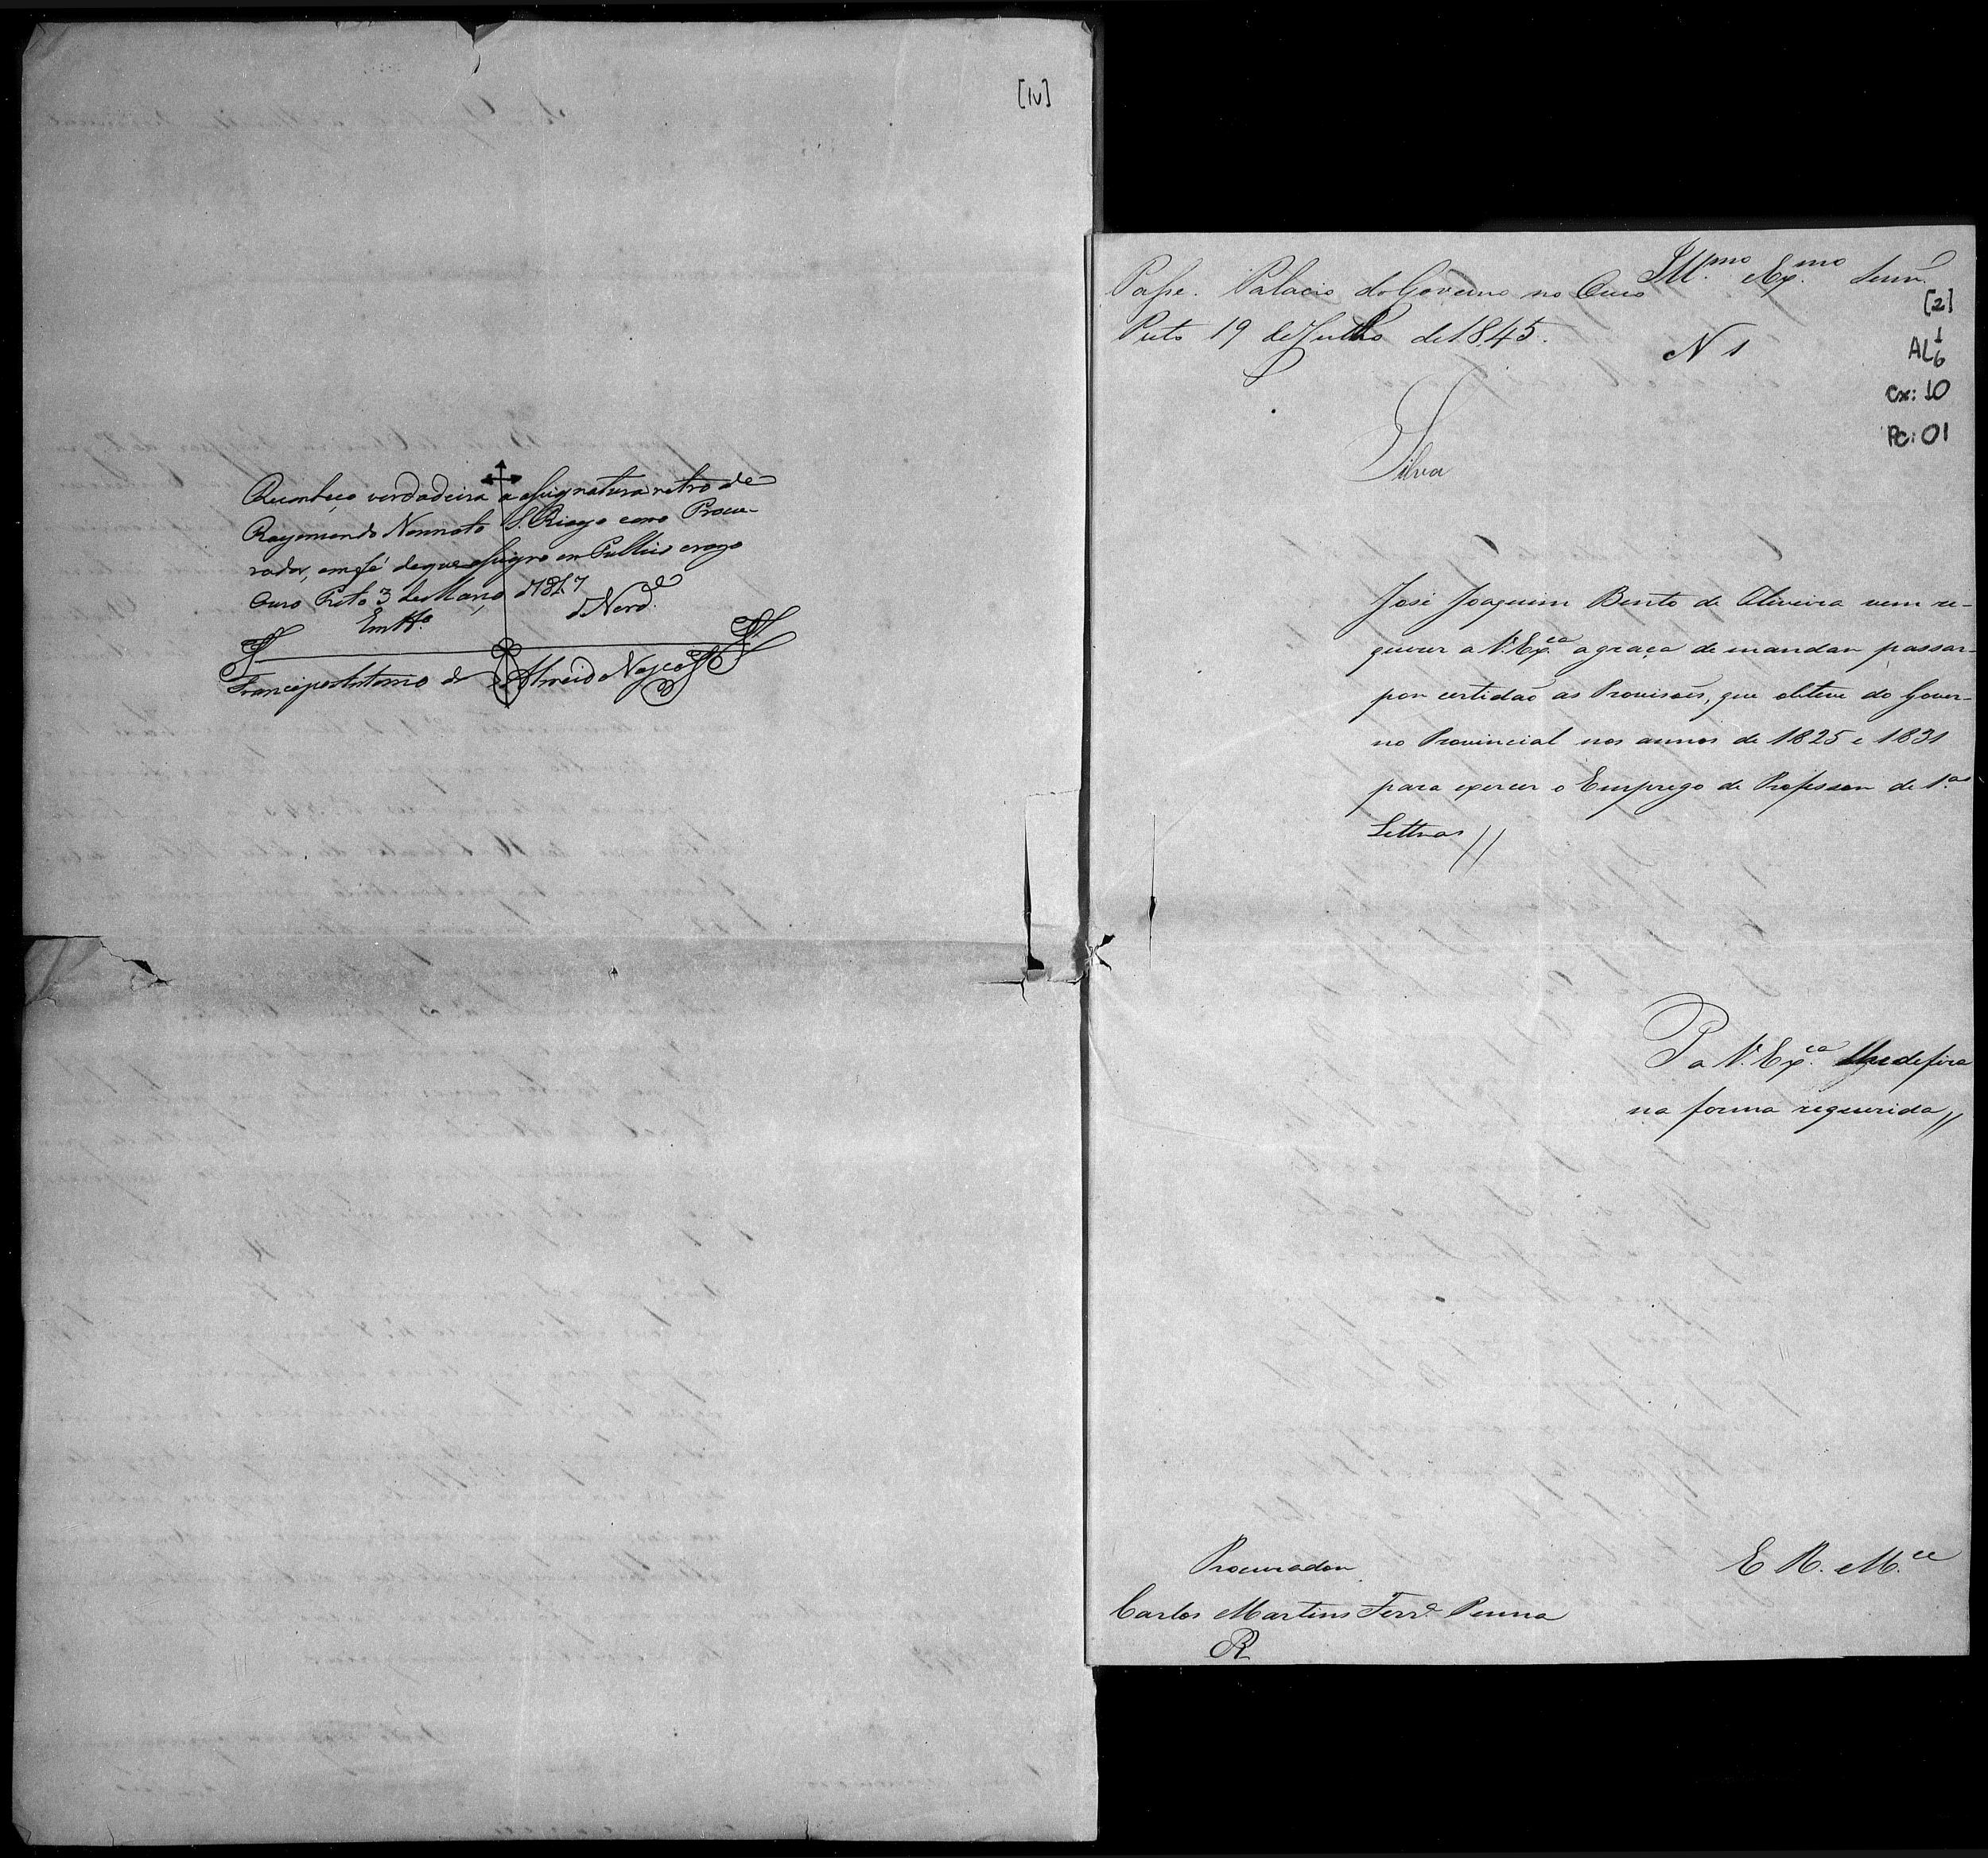 [1v]
Reconheço verdadeira a assignatura retro de
Raymundo Nonnato S. Thiago como Procu-
rador, em fé de que assigno em Publico e razo
Ouro Preto 3 de Março de 1847
Em tto. de Verde.
Francisco Antonio de Almeida
Illmo. Exmo. Senr.
Passe. Palacio do Governo no Ouro
Preto 19 de Julho de 1845.
N 1
[2]
AL 1
6
Cx: 10
PC: 01
Silva
José Joaquim Bento de Oliveira vem re-
querer a V. Exca. a graça de mandar passar
por certidaõ as Provisões, que obteve do Gover-
no Provincial nos annos de 1825 e 1831
para exercer o Emprego de Professor de 1as
Lettras //
P a V. Exca. lhe defira
na forma requerida //
E R. Mce
Procurador
Carlos Martins Ferra. Penna
R